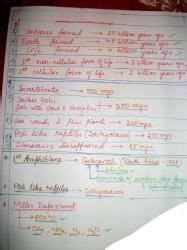 1) Universe formed → 20 billion years ago
2) Earth formed → 4.5 billion years ago
3) Life formed → 4 billion years ago
4) 1st non-cellular form of life → 3 billion years ago
5) 1st cellular form of life → 2 billion years ago
Invertebrates → 500 mya
Jawless fish
fish with and stumpy fins → 350 mya
Sea weeds & few plants → 320 mya
Fish like reptiles (Ichthyosaurs) → 200 mya
Dinosaurs disappeared → 65 mya
1st Amphibians → Coelacanth (South Africa
lobefins
ancestors of modern day frogs
& salamanders
Fish like reptiles → Ichthyosaurs
Miller Experiment
800°C
CH₄, NH₃, H₂, H₂O